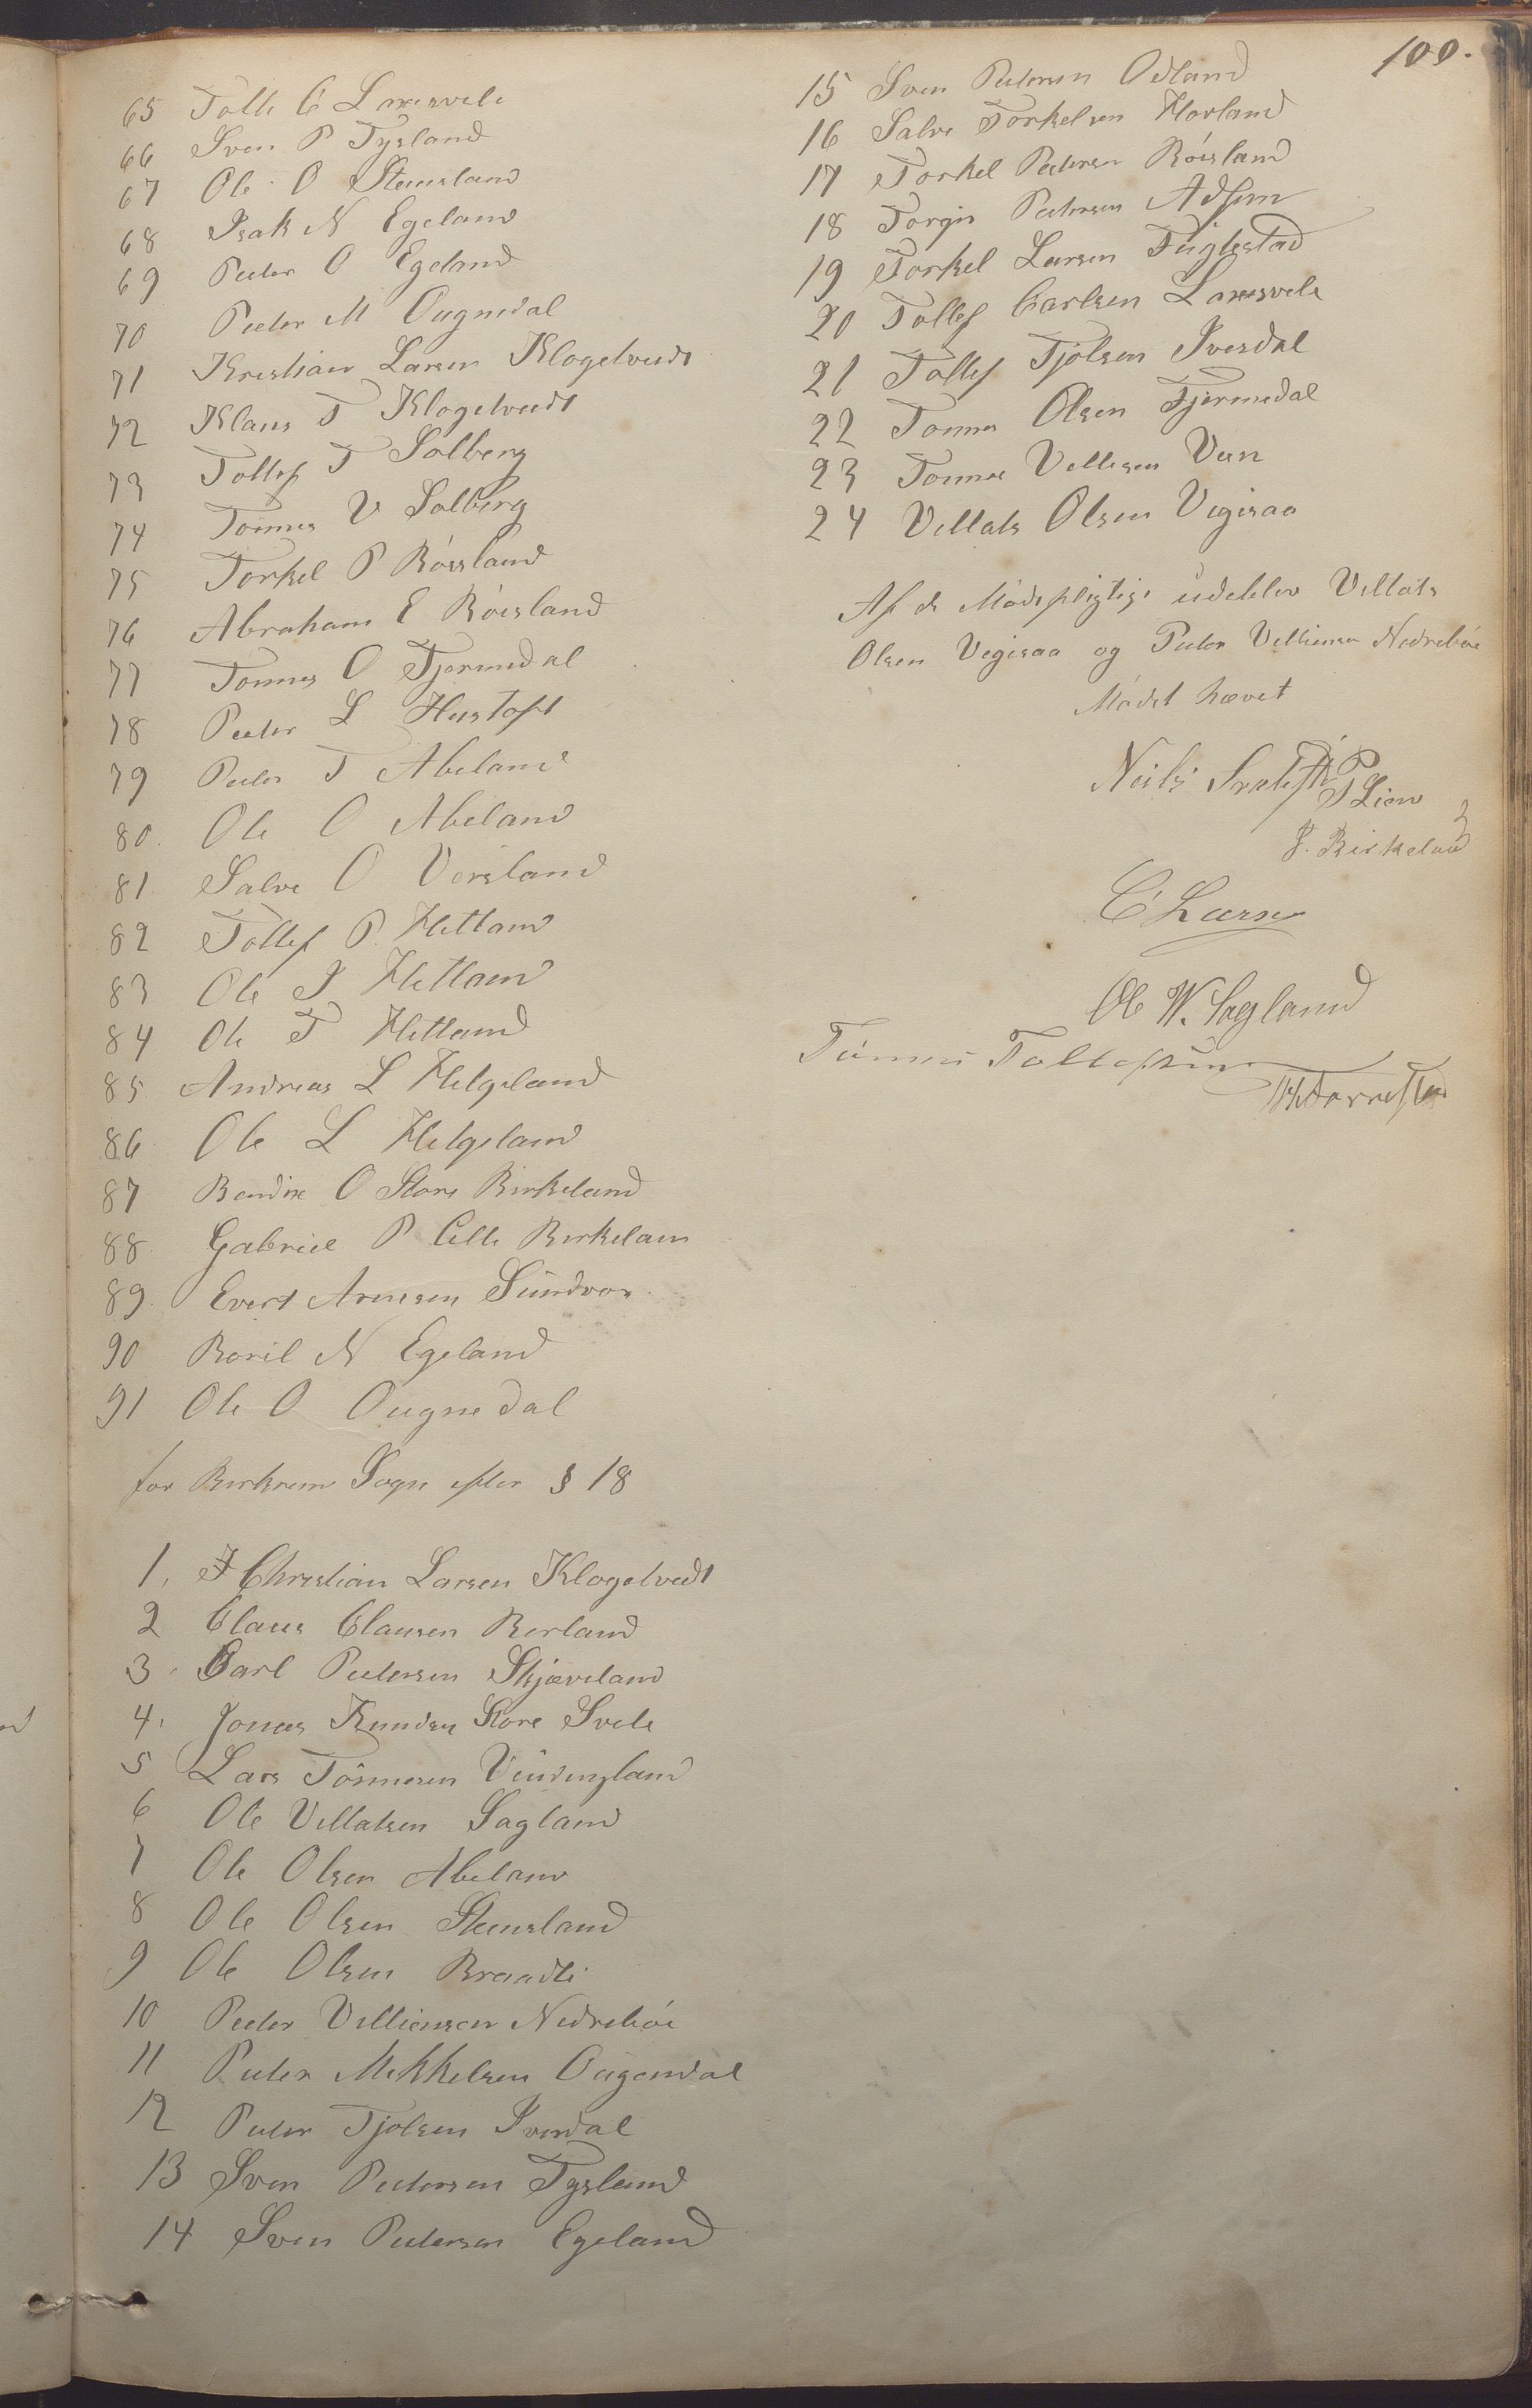 100.
65 Tolle C Laxesvele
66 Sven P Tysland
67 Ole O Steensland
68 Isak N Egeland
69 Peder O Egeland
70 Peder M Ougnedal
71 Kristian Larsen Klogetvedt
72 Klaus T Klogetvedt
73 Tollef T Solberg
74 Tonnes V Solberg
75 Torkel P Röisland
76 Abraham E Röisland
77 Tonnes O Tjormedal
78 Peder L Hustoft
79 Peder T Abeland
80. Ole O Abeland
81 Salve O Versland
82 Tollef P. Hetland
83 Ole I Hetland
84 Ole T Hetland
85 Andreas L Helgeland
86 Ole L Helgeland
87 Bendix O Store Birkeland
88 Gabriel P Lille Birkeland
89. Evert Arnesen Sündvor
90 Boril N Egeland
91 Ole O Ougnedal
for Birkrem Sogn efter § 18
1. Christian Larsen Klogetvedt
2 Claus Clausen Berland
3. Carl Pedersen Skjæveland
4. Jonas Knudsen Store Svele
5 Lars Tönnesen Vindingland
6 Ole Villatsen Sagland
7 Ole Olsen Abeland
8 Ole Olsen Steensland
9 Ole Olsen Braadli
10 Peder Villiensen Nedreböe
11 Peder Mikkelsen Ougendal
12 Peder Tjolsen Ivesdal
13 Sven Pedersen Tysland
14 Sven Pedersen Egeland
15 Sven Pedersen Odland
16 Salve Torkelsen Hovland
17 Torkel Pedersen Röisland
18 Torger Pedersen
19 Torkel Larsen Füglestad
20 Tollef Carlsen Laxesvele
21 Tollef Tjolsen Ivesdal
22 Tonnes Olsen Tjormedal
23 Tonnes Villesen Veen
24 Villats Olsen Vegisaa
Af de Mödepligtige udeblev Villats
Olsen Vegisaa og Peder Villiensen Nedreböe
Mödet hævet
Neils
P Lien
J. Birkeland
C Larsen
Ole W. Sagland
Tönnes Tollefsen